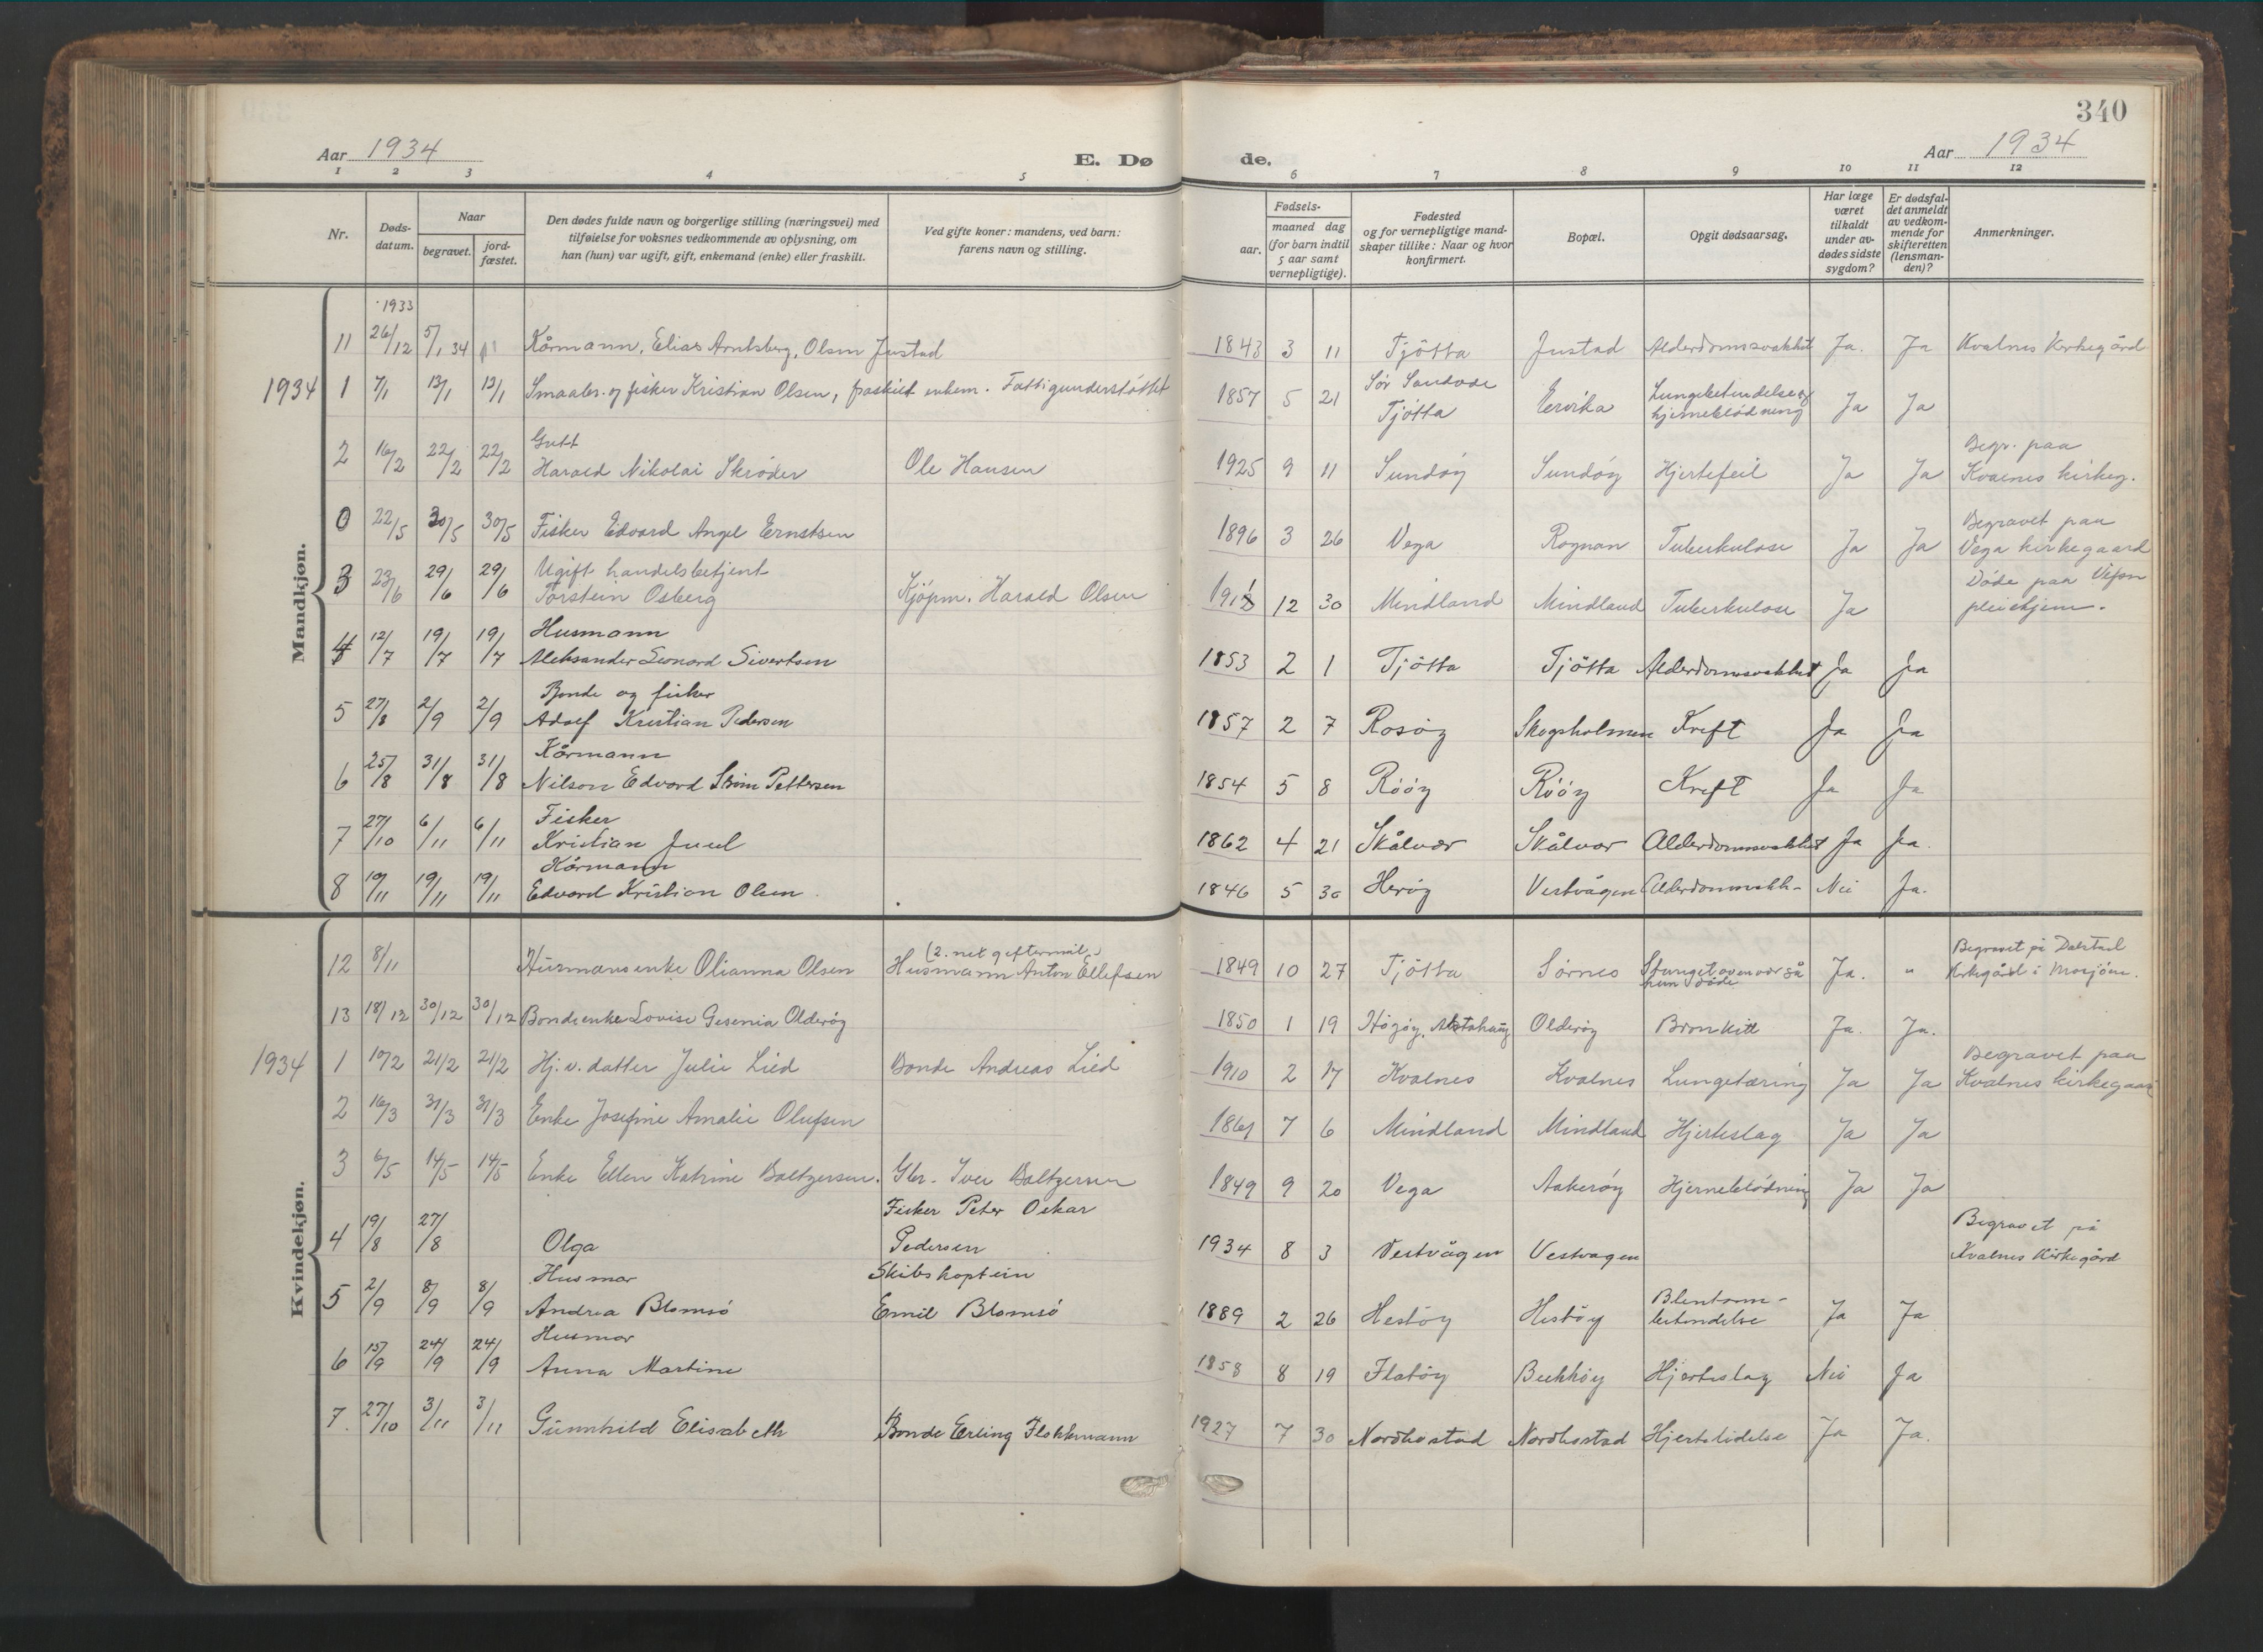 340
Aar 1934
E. Dø
de.
Aar 1934
1 2 3 4 5 6 7 8 9 10 11 12
Nr.
Døds-
datum.
Naar
begravet.
jord-
fæstet.
Den dødes fulde navn og borgerlige stilling (næringsvei) med
tilføielse for voksnes vedkommende av oplysning, om
han (hun) var ugift, gift, enkemand (enke) eller fraskilt.
Ved gifte koner: mandens, ved barn:
farens navn og stilling.
Fødsels-
aar.
maaned dag
(for barn indtil
5 aar samt
vernepligtige).
Fødested
og for vernepligtige mand-
skaper tillike: Naar og hvor
konfirmert.
Bopæl.
Opgit dødsaarsag.
Har læge
været
tilkaldt
under av-
dødes sidste
sygdom?
Er dødsfal-
det anmeldt
av vedkom-
mende for
skifteretten
(lensman-
den)?
Anmerkninger.
Mandkjøn.
1933
11 26/12 5/1 34 Kårmann, Elias Arntsberg, Olsen Justad 1843 3 11 Tjötta Justad Alderdomssvakhet Ja. Ja Kvalnes Kirkegård
Sör Sandvær Lungebetendelse og
1934 1 7/1 13/1 13/1 Smaabr. og fisker Kristian Olsen, fraskilt enkem. Fattigunderstöttet 1857 5 21 Tjötta Ervika hjerneblödning Ja Ja
Gutt Begr. paa
2 16/2 22/2 22/2 Harald Nikolai Skrøder Ole Hansen 1925 9 11 Sundöy Sundöy Hjertefeil Ja Ja Kvalnes kirkeg.
Begravet paa
0 22/5 30/5 30/5 Fisker Edvard Angel Ernstsen 1896 3 26 Vega Rognan Tuberkulose Ja Ja Vega kirkegaard
Ugift handelsbetjent Döde paa Vefsn
3 23/6 29/6 29/6 Torstein Osberg Kjöpm. Harald Olsen 12 30 Mindland Mindland Tuberkulose Ja pleiehjem.
Husmann
4 12/7 19/7 19/7 Aleksander Leonard Sivertsen 1853 2 1 Tjötta Tjötta Alderdomssvakhet Ja Ja
Bonde og fisker
5 27/8 2/9 2/9 Adolf Kristian Pedersen 1857 2 7 Rosöy Skogsholmen Kreft Ja Ja
Kårmann
6 25/8 31/8 31/8 Nilson Edvard Pettersen 1854 5 8 Rööy Rööy Kreft Ja Ja
Fisker
7 27/10 6/11 6/11 Kristian Juul 1862 4 21 Skålvær Skålvær Alderdomssvakhet Ja Ja.
Kårmann
8 10/11 19/11 19/11 Edvard Kristian Olsen 1846 5 30 Heröy Vestvågen Alderdomsvakh- Nei Ja.
Kvindekjøn.
(2. net giftermål) Begravet på Dolstad
12 8/11 Husmansenke Olianna Olsen Husmann Anton Ellefsen 1849 10 27 Tjötta Sörnes Stunget av en vor så Ja. " Kirkegård i Mosjöen.
hun döde
13 18/12 30/12 30/12 Bondeenke Lovise Gesenia Olderöy 1850 1 19 Högöy, Alstahaug Olderöy Bronkitt Ja. Ja.
Begravet paa
1934 1 10/2 21/2 21/2 Hj. v. datter Julie Lied Bonde Andreas Lied 1910 2 17 Kvalnes Kvalnes Lungetæring Ja Ja Kvalnes kirkegaard
2 16/3 31/3 31/3 Enke Josefine Amalie Olufsen 1861 7 6 Mindland Mindland Hjerteslag Ja Ja
3 6/5 14/5 14/5 Enke Ellen Katrine Baltzersen. Gbr. Iver Baltzersen 1849 9 20 Vega Aakeröy Hjerneblödning Ja Ja
Fisker Peter Oskar Begravet på
4 19/8 27/8 Olga Pedersen 1934 8 3 Vestvågen Vestvagen Kvalnes Kirkegård
Husmor Skibskaptein Blentarm-
5 2/9 8/9 8/9 Andrea Blomsö Emil Blomsö 1889 2 26 Hestöy Hestöy betendelse Ja Ja
Husmor
6 15/9 24/9 24/9 Anna Martine 1858 8 19 Flatöy Bukköy Hjerteslag Nei Ja
7 27/10 3/11 3/11 Gunnhild Elisabeth Bonde Erling Flokkmann 1927 7 30 Nordbostad Nordbostad Hjertelidelse Ja Ja.